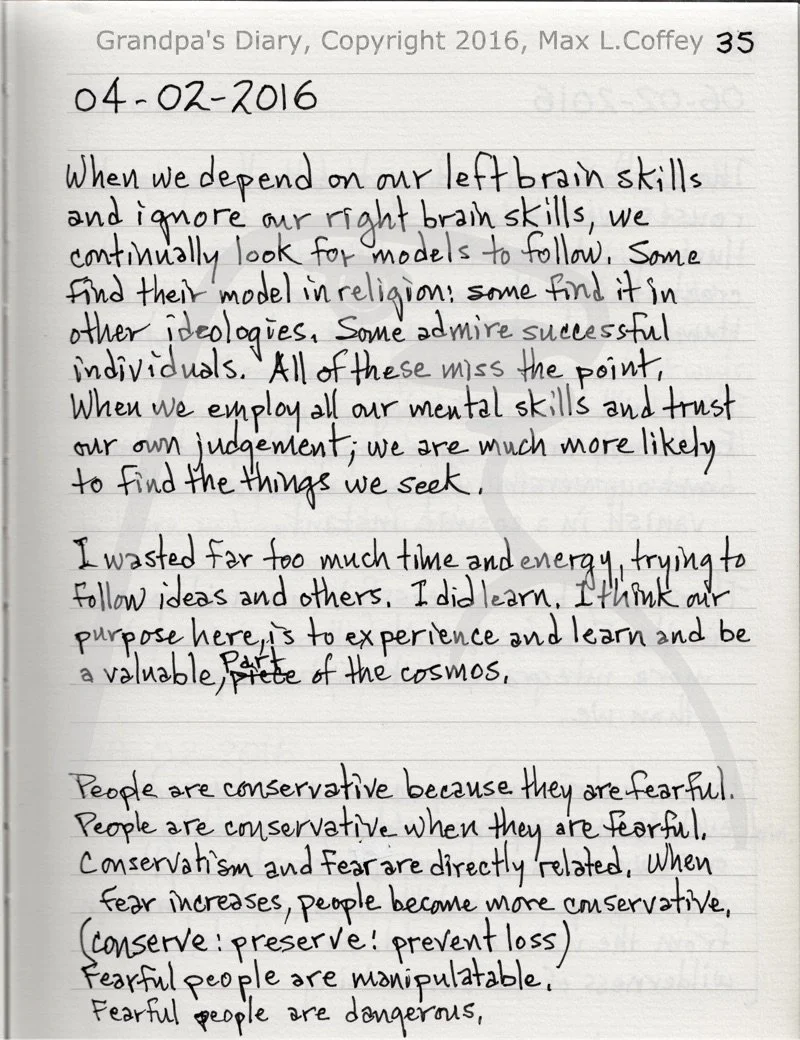 Grandpa's Diary, Copyright 2016, Max L.Coffey 35
04-02-2016
When we depend on our left brain skills
and ignore our right brain skills, we
continually look for models to follow. Some
find their model in religion: some find it in
other ideologies. Some admire successful
individuals. All of these miss the point.
When we employ all our mental skills and trust
our own judgement; we are much more likely
to find the things we seek.
I wasted far too much time and energy, trying to
follow ideas and others. I did learn. I think our
purpose here, is to experience and learn and be
a valuable, part of the cosmos.
People are conservative because they are fearful.
People are conservative when they are fearful.
Conservatism and fear are directly related. When
fear increases, people become more conservative.
(conserve: preserve: prevent loss)
Fearful people are manipulatable.
Fearful people are dangerous.